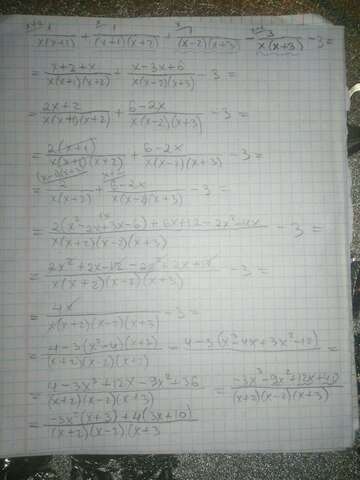 x+2 x x x-2
1/x(x+1) + 1/(x+1)(x+2) + 1/(x-2)(x+3) - 3/x(x+3) - 3 =
= x+2+x/x(x+1)(x+2) + x-3x+6/x(x-2)(x+3) - 3 =
= 2x+2/x(x+1)(x+2) + 6-2x/x(x-2)(x+3) - 3 =
= 2(x+1)/x(x+1)(x+2) + 6-2x/x(x-2)(x+3) - 3 =
(x-2)(x+3) x+2
= 2/x(x+2) + 6-2x/x(x-2)(x+3) - 3 =
= 2(x²-2x+3x-6)+6x+12-2x²-4x/x(x+2)(x-2)(x+3) - 3 =
= 2x²+2x-12-2x²+2x+12/x(x+2)(x-2)(x+3) - 3 =
= 4x/x(x+2)(x-2)(x+3) - 3 =
= 4-3(x²-4)(x+3)/(x+2)(x-2)(x+3) = 4-3(x³-4x+3x²-12)/(x+2)(x-2)(x+3) =
= 4-3x³+12x-9x²+36/(x+2)(x-2)(x+3) = -3x³-9x²+12x+40/(x+2)(x-2)(x+3)
= -3x²(x+3)+4(3x+10)/(x+2)(x-2)(x+3